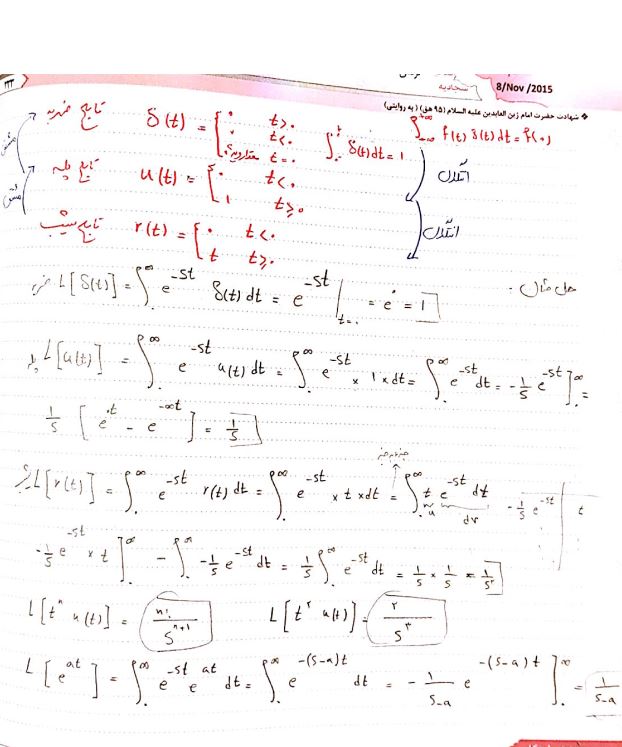 ۲۳
سجادیه 8/Nov /2015
❖ شهادت حضرت امام زین العابدین علیه السلام (۹۵ هق) (به روایتی)
تابع ضربه δ(t) = { ۰ t>۰
۰ t<۰
t=۰ ∫ δ(t)dt = ۱ ∫_{-∞}^{+∞} f(t) δ(t) dt = f(۰)
تابع پله u(t) = { ۰ t<۰ انتگرال
۱ t≥۰
تابع شیب r(t) = { ۰ t<۰ انتگرال
t t≥۰
حل مثال:
ضربه L[δ(t)] = ∫_۰^∞ e^{-st} δ(t) dt = e^{-st} |_{t=۰} = e^۰ = 1
پله L[u(t)] = ∫_۰^∞ e^{-st} u(t) dt = ∫_۰^∞ e^{-st} × 1 × dt = ∫_۰^∞ e^{-st} dt = -1/s e^{-st} ]_۰^∞ =
1/s [ e^{۰t} - e^{-∞t} ] = 1/s
جزء به جزء
شیب L[r(t)] = ∫_۰^∞ e^{-st} r(t) dt = ∫_۰^∞ e^{-st} × t × dt = ∫_۰^∞ t e^{-st} dt
u dv -1/s e^{-st} | t
-1/s e^{-st} × t ]_۰^∞ - ∫_۰^∞ -1/s e^{-st} dt = 1/s ∫_۰^∞ e^{-st} dt = 1/s × 1/s = 1/s^۲
L[t^n u(t)] = n!/s^{n+1} L[t^۲ u(t)] = ۲/s^۳
L[e^{at}] = ∫_۰^∞ e^{-st} e^{at} dt = ∫_۰^∞ e^{-(s-a)t} dt = - 1/(s-a) e^{-(s-a)t} ]_۰^∞ = 1/(s-a)